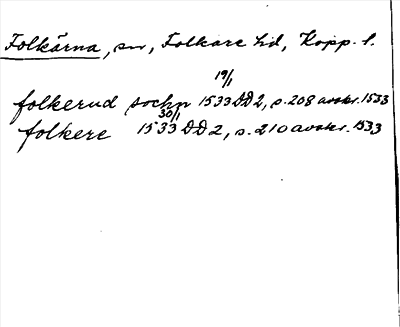 Folkärna, sn, Folkare hd, Kopp. l.
19/1
folkerud sockn 1533 DD 2, s. 208 avskr. 1533
30/1
folkere 1533 DD 2, s. 210 avskr. 1533